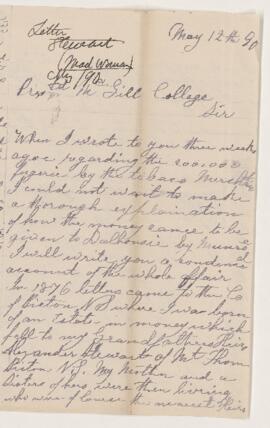 Letter
Stewart
(Mad Woman)
May 12th 90
Mc Gill College
Sir
When I wrote to you three weeks
agoe regarding the 200,000
by the tobaco Merchtn
I could not wait to make
a thorough explaination
of how the money came to be
given to Dalhousie by
I will write you a condence
account of the whole affair
In 1876 letters came to the Co
of Pictou N S where I was born
of an Estate on money which
fell to my Grand fathers Heirs
Alexander Stewart of Mt Thom
Pictou N S. My Mother and a
Sisters of hers, were then living
who were of course the nearest Heirs